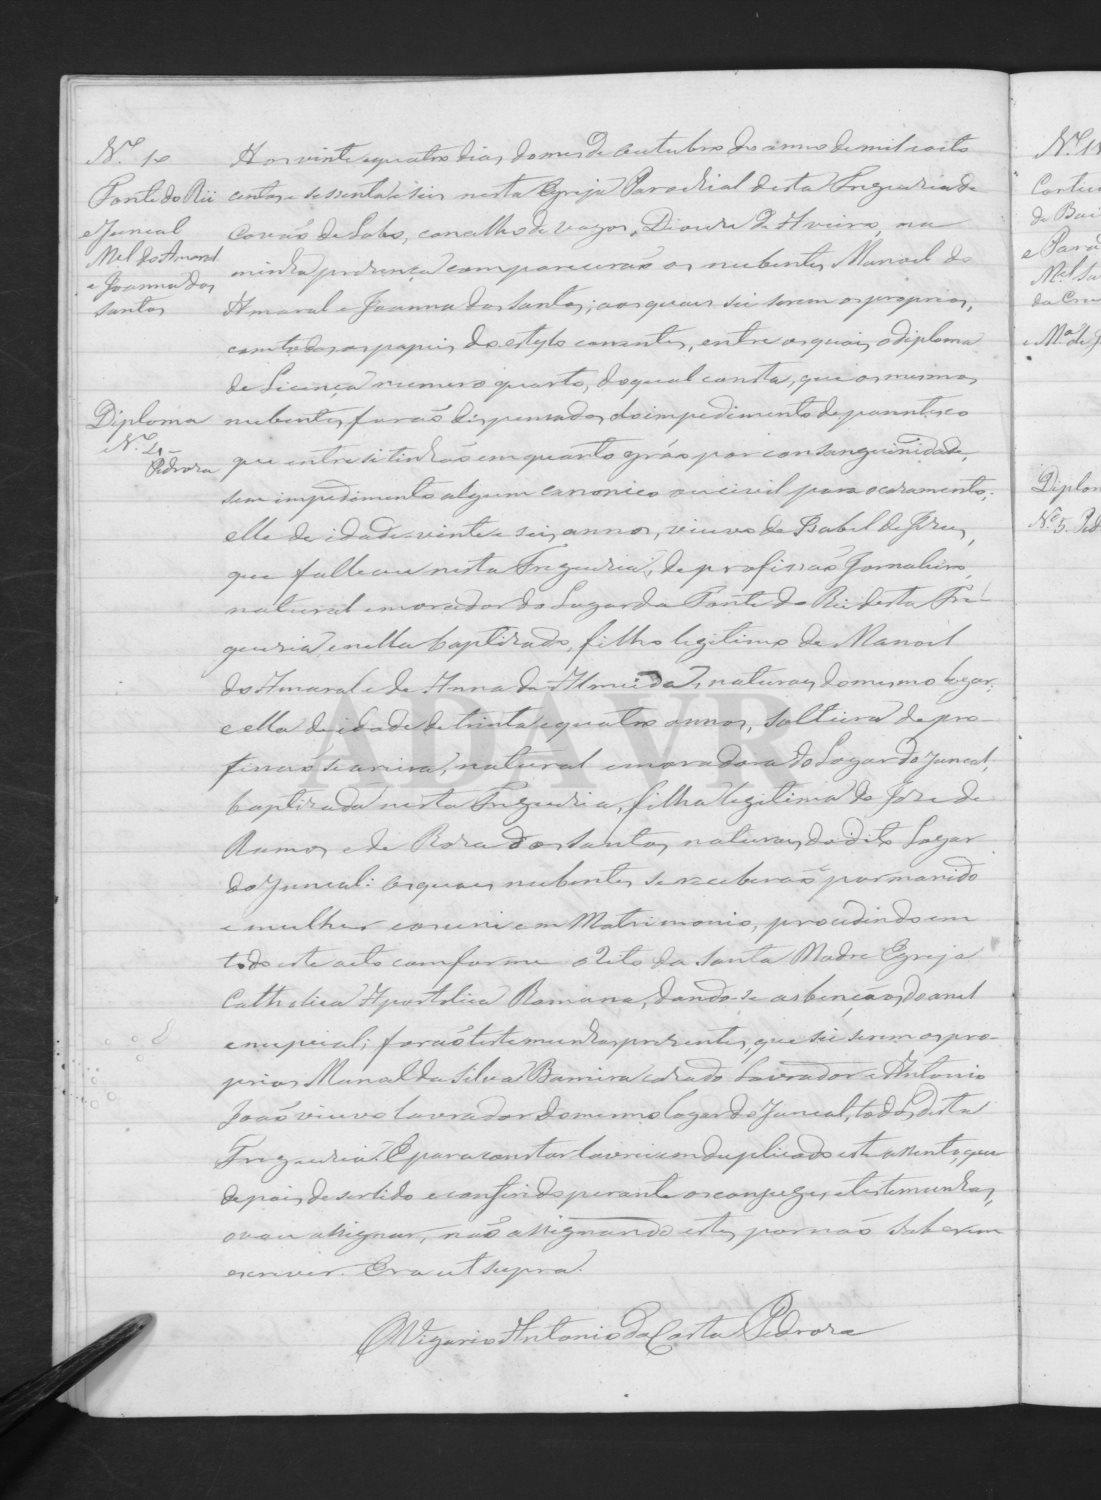 N.º 10
Ponte do Rii
e Juncal
Mel do Amaral
e Joanna dos
Santos
Diploma
N.º 4
Pedroza
Aos vinte e quatro dias do mes de Outubro do anno de mil e oito
centos e sessenta e seis nesta Egreja Parochial desta Freguezia de
Covão de Lobo, concelho de Vagos, Diocese de Aveiro, na
minha presença compareceraõ os nubentes Manoel do
Amaral e Joanna dos Santos, aos quaes sei serem os proprios,
com todos os papeis do estylo correntes, entre os quaes o diploma
de Licença numero quarto, do qual consta, que os mesmos
nubentes foraõ dispensados do impedimento de parentesco
que entre si tinhaõ em quarto gráo por consanguinidade,
sem impedimento algum canonico ou civil para o casamento;
elle de idade vinte e seis annos, viuvo de Isabel de Jesus,
que falleceu nesta Freguezia, de profissaõ Jornaleiro,
natural e morador do Lugar da Ponte do Rii desta Fre-
guezia, e nella baptizado, filho legitimo de Manoel
do Amaral e de Anna de Almeida, naturaes do mesmo logar;
e ella de idade de trinta e quatro annos, solteira de pro-
fissaõ Seareira, natural e moradora do Logar do Juncal,
baptizada nesta Freguezia, filha legitima de Joze de
Ramos e de Roza dos Santos naturaes do dito Logar
do Juncal: os quaes nubentes se receberaõ por marido
e mulher e os uni em Matrimonio, procedendo em
todo este acto conforme o Rito da Santa Madre Egreja
Catholica Apostolica Romana, dando-se as bençãos do anel
e nupcial; foraõ testemunhas prezentes, que sei serem os pro-
prios Manoel da Silva Bamira cazado Lavrador e Antonio
Joaõ viuvo lavrador do mesmo logar do Juncal, todos desta
Freguezia. E para constar lavrei em duplicado este assento, que
depois de ser lido e conferido perante os conjuges e testemunhas,
o vou assignar, naõ assignando estes por naõ saberem
escrever. Era ut supra.
O Vigario Antonio da Costa Pedroza
Diplom
N.º 5. Ped